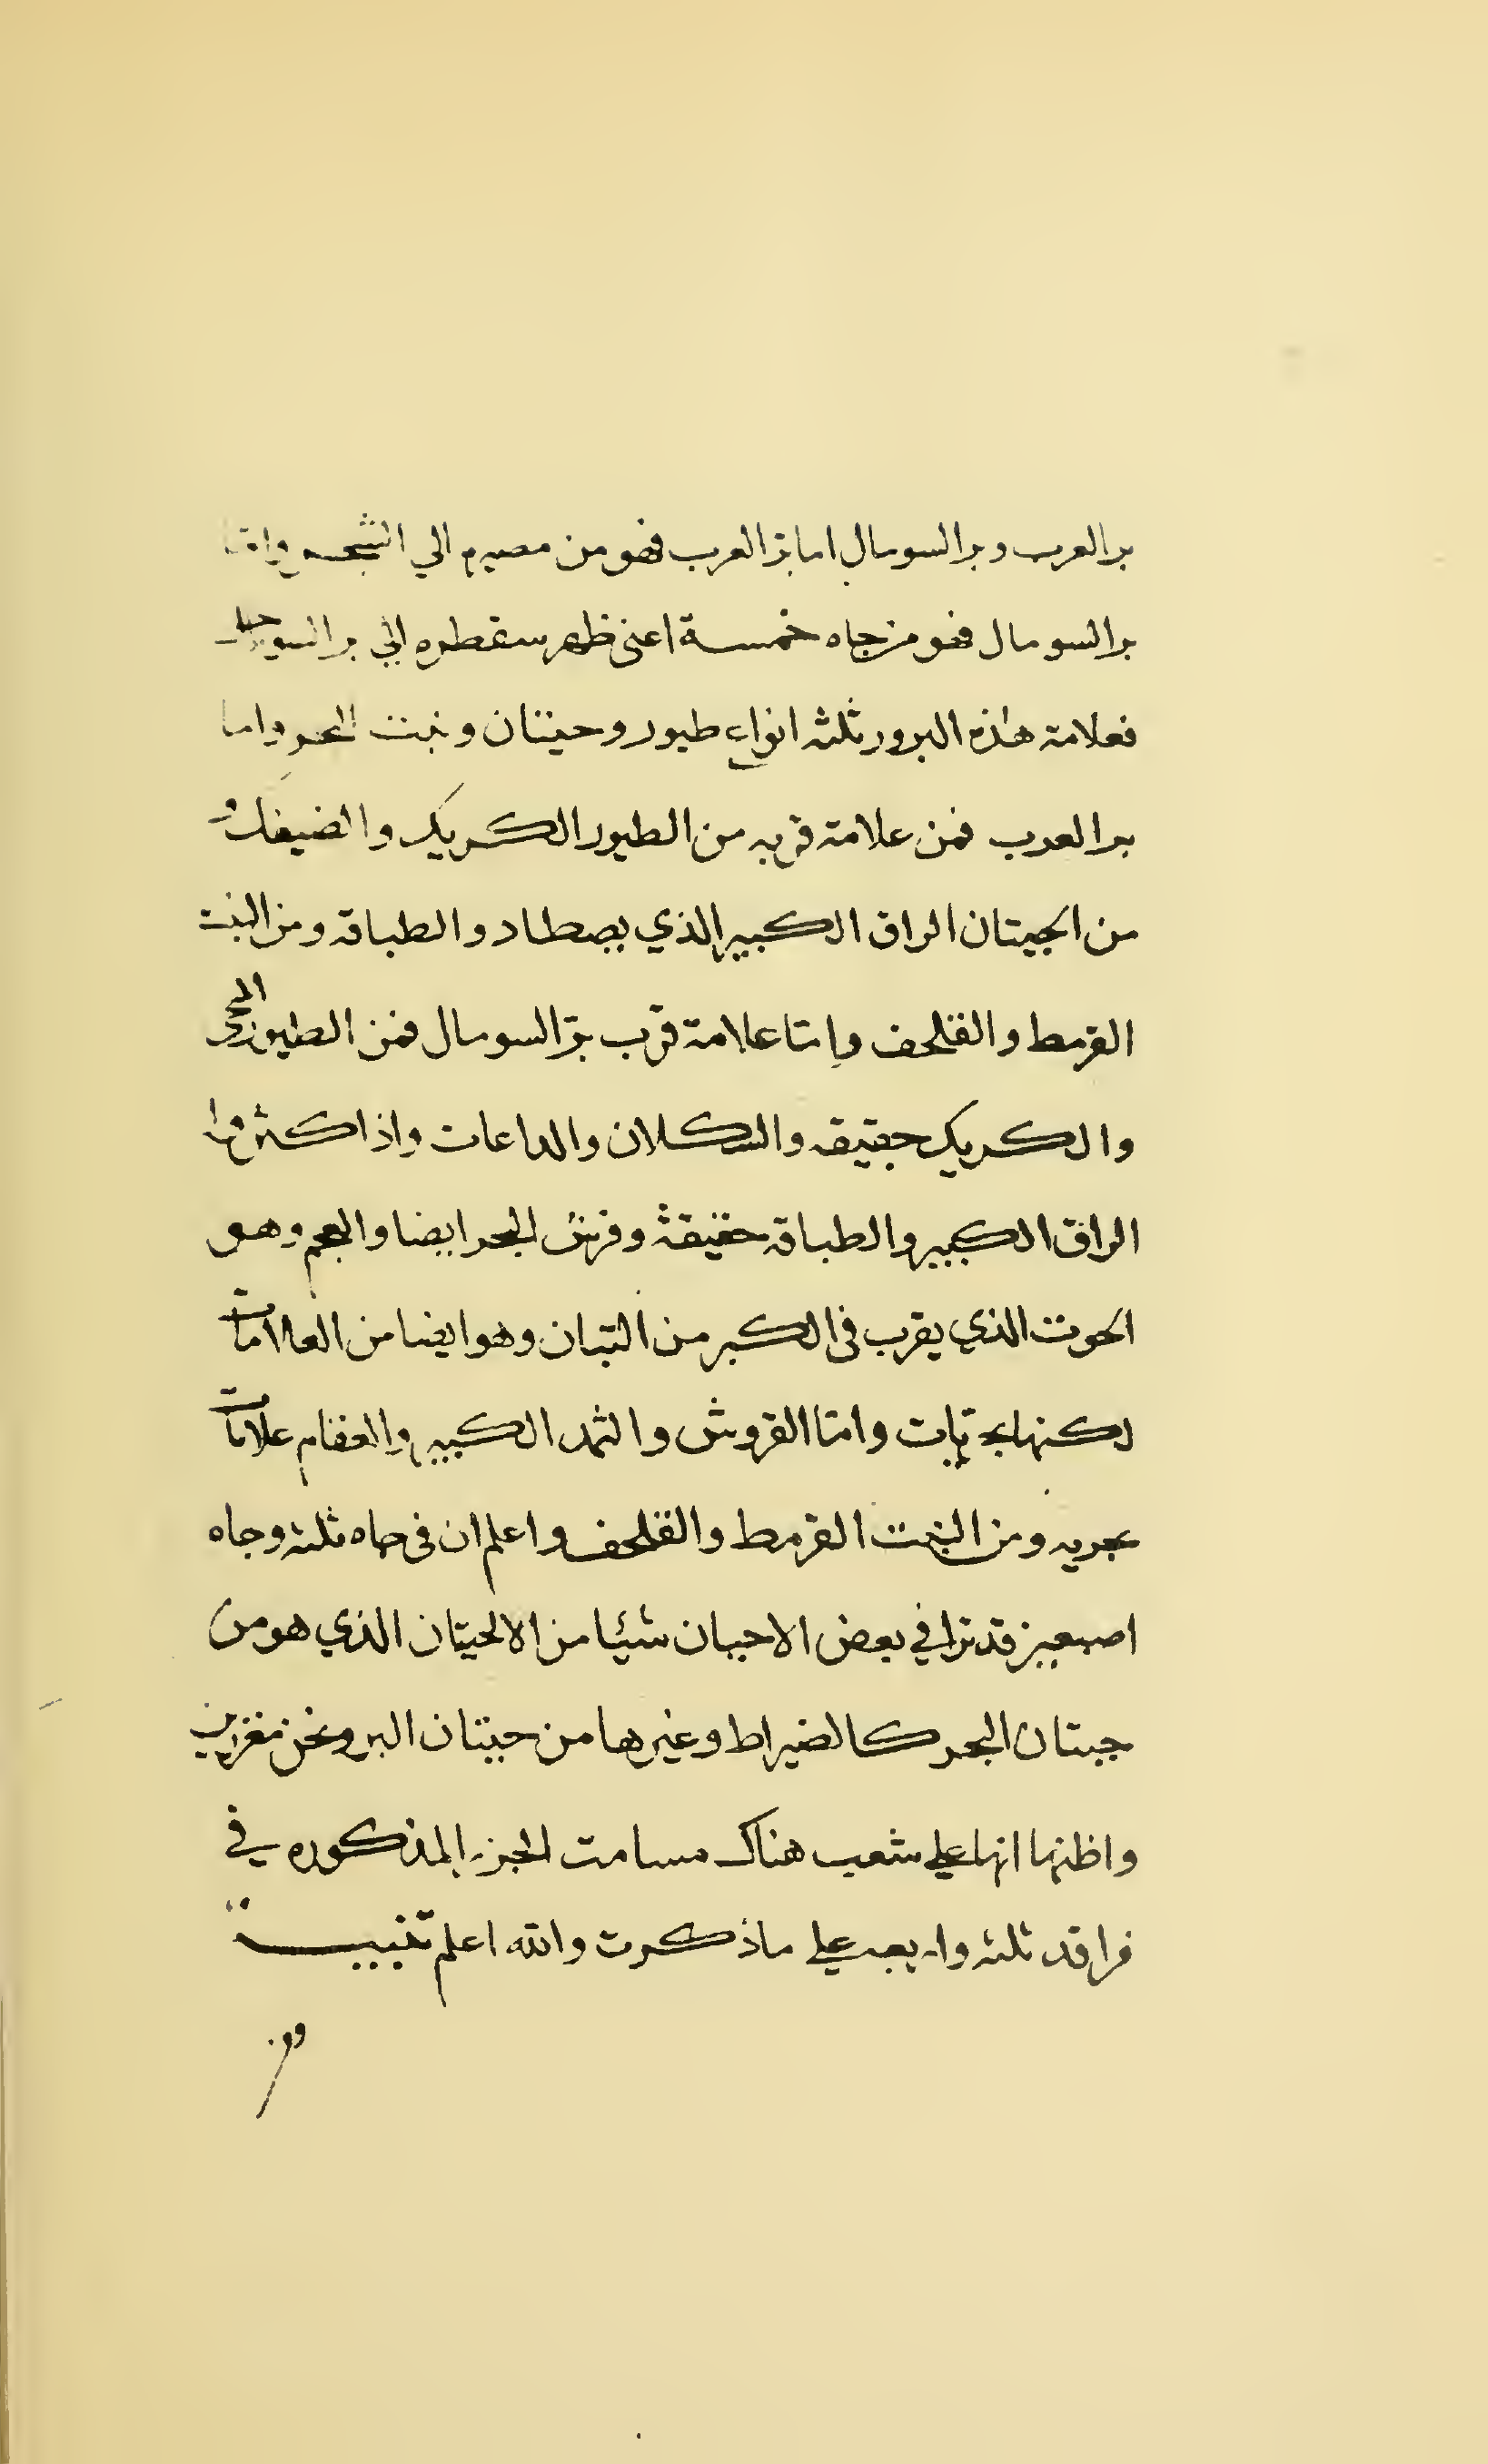 بر العرب وبر السومال اما بر العرب فهو من مصيره الي الشجر واما
بر السومال فهو من جاه خمسة اعنى ظهر سقطره الي بر السومال
فعلامة هذه البرور ثلثه انواع طيور وحيتان ونبت البحر واما
بر العرب فمن علامة قربه من الطيور الكريك والضيفك و
من الحيتان الراق الكبير الذي يصطاد والطباقه ومن النبت
القرمط والقلحف واما علامة قرب بر السومال فمن الطيور
والكريك حقيقه والسكلان والداعات واذا كثر
الراق الكبير والطباقه حقيقة وقرش البحر ايضا والبعم وهو
الحوت الذي يقرب في الكبر من التبان وهو ايضا من العلامات
لكنها واما القروش والثمد الكبير والعفام علامات
بحريه ومن النبت القرمط والقلحف واعلم ان في جاه ثلثه وجاه
اصبعين قد ترا في بعض الاحيان شيئا من الالحيتان الذي هو من
حيتان البحر كالضيراط وغيرها من حيتان البر ونحن مغزرين
واظنها انها علي شعب هناك مسامت الجزر المذكوره في
فراقد ثلثه واربعه علي ما ذكرت والله اعلم تنبيه